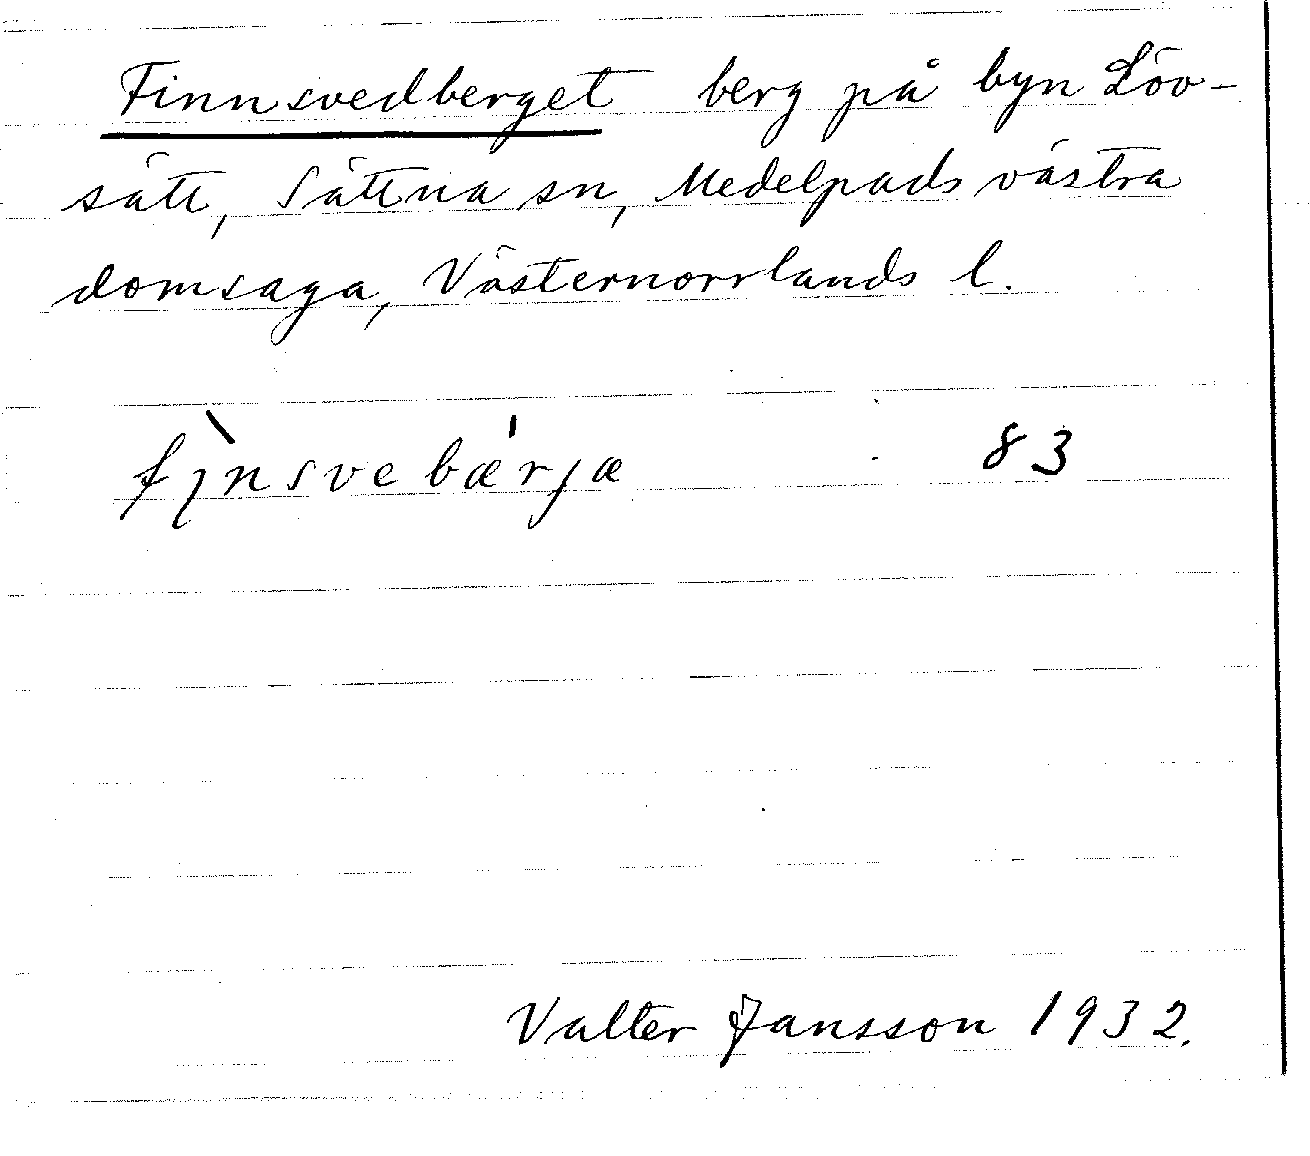 Finnsvedberget berg på byn Löv-
sätt, Sättna sn, Medelpads västra
domsaga, Västernorrlands l.
fı̨̀nsvebæ̍rjæ 83
Valter Jansson 1932.